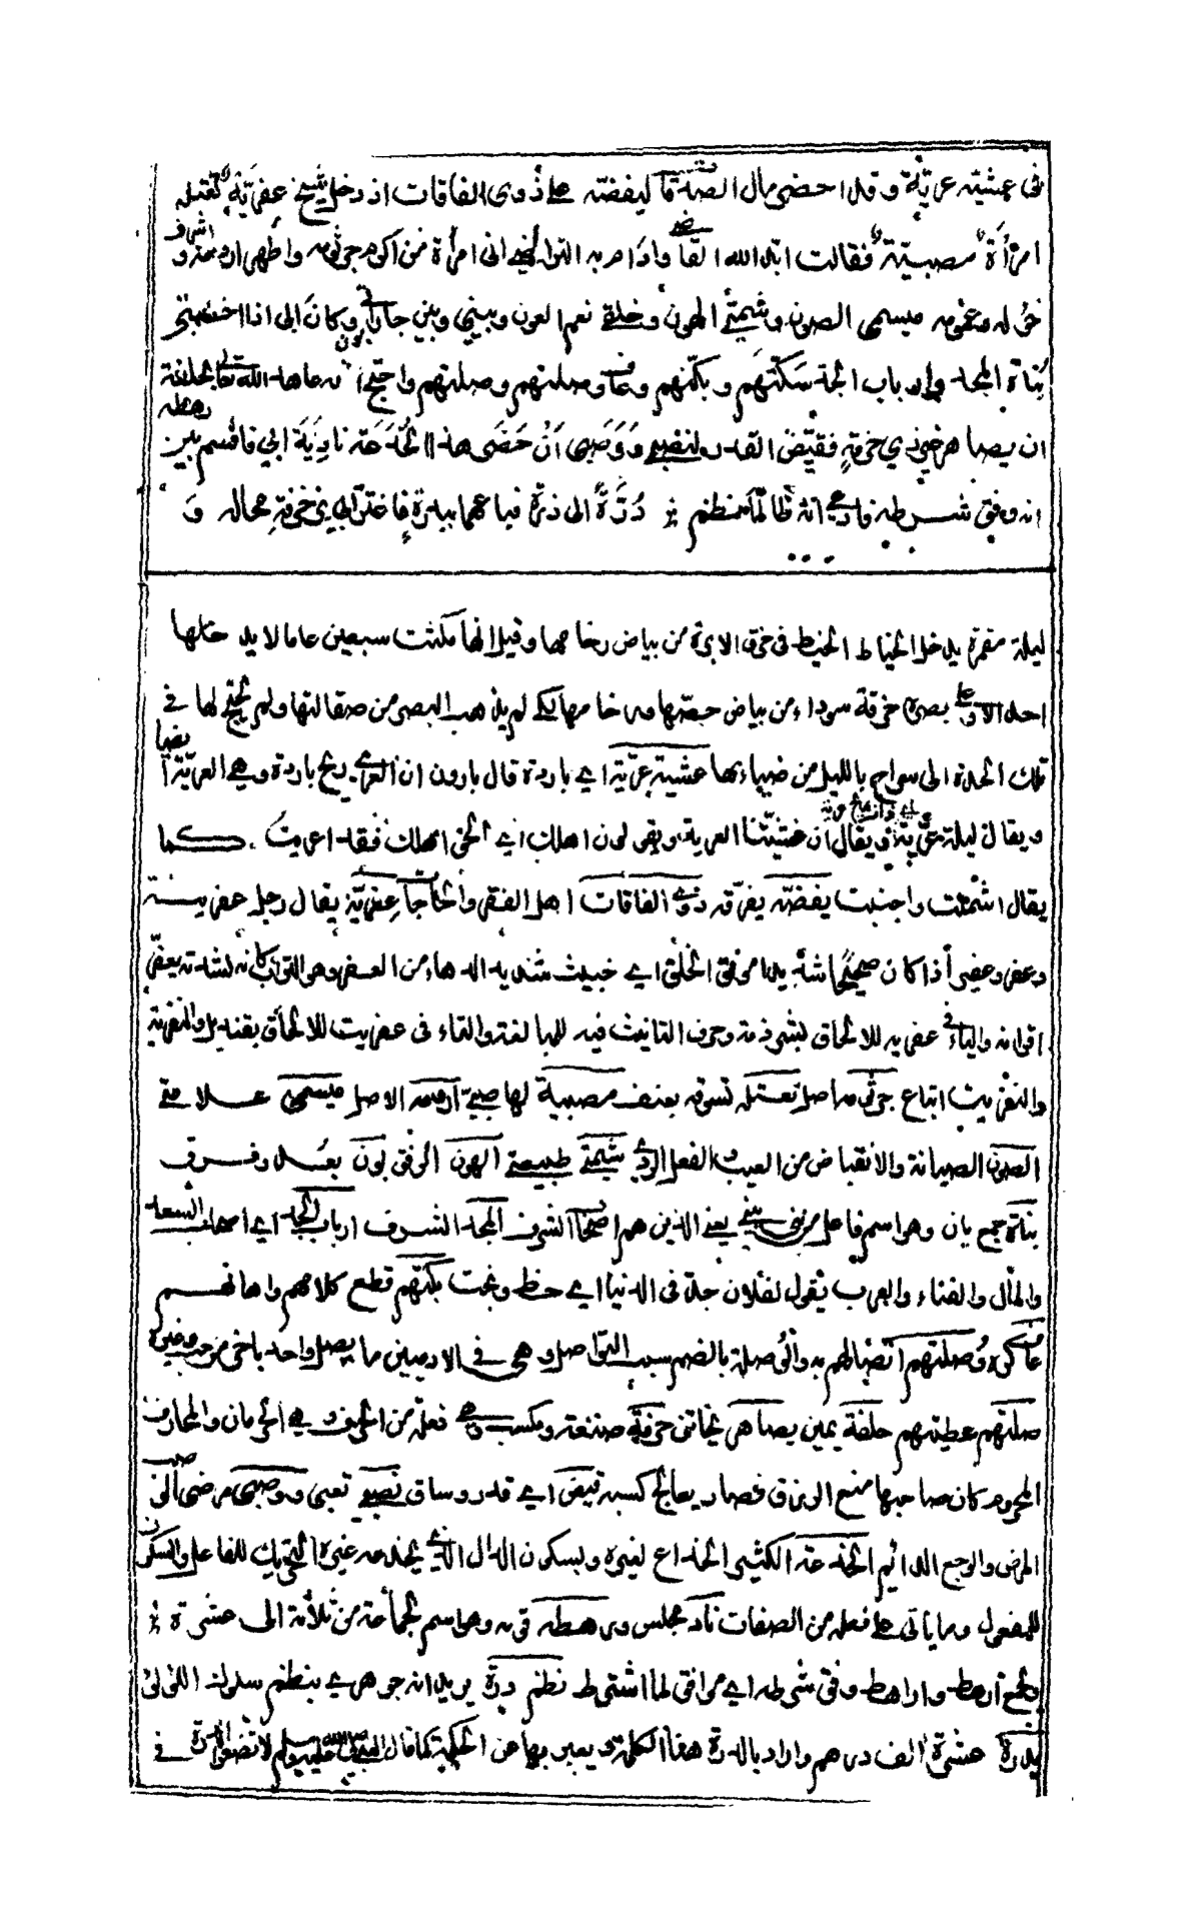 في عشية عرية وقد احضر مال الصدقة ليفضه على ذوي الفاقات اذ دخل شيخ عفرية تعتله
امرأة مصبية فقالت ايد الله القاضي وادام به التراضي اني امرأة من اكرم جرثومة واطهر ارومة واشرف
خؤلة وعمومة ميسمي الصون وشيمتي الهون وخلقي نعم العون وبيني وبين جاراتي بون وكان ابي اذا خطبني
بناة المجد وارباب الجد سكتهم وبكتهم وعاف وصلتهم وصلتهم واحتج بانه عاهد الله تعالى بحلفة
ان لا يصاهر غير ذي حرفة فقيض القدر لنصبي ووصبي ان حضر هذا الخدعة نادي ابي فاقسم بين رهطه
انه وفق شرطه فادعى انه طالما نظم درة الى درة فباعهما ببدرة فاغتر ابي بزخرفة محاله و
ليلة مقمرة يدخل الخياط الخيط في خرق الابرة من بياض رخامها وقيل انها مكثت سبعين عاما لا يدخلها
احد الا وعلى بصره خرقة سوداء من بياض حيطانها ورخامها لكي لم يذهب البصر من صقالتها ولم يحتج لها في
تلك المدة الى سراج بالليل من ضيياءها عشية عرية اي باردة قال بارون ان العرى ريح باردة وهي العرية ايضا
ويقال ليلة عرية ويقال ان عشيتنا العرية ويقولون اهلك اي الحق اهلك فقد اعريت كما
يقال اشملت واجنبت يفضه يفرقه ذوي الفاقات اهل الفقر والحاجات عفرية يقال رجل عفريت
وعفر وعفير اذا كان صحيحا شديدا موفق الخلق اي خبيث شديد الدهاء من العفر وهو التراب كانه لشدته يعفر
اقرانه والياء في عفرية للالحاق بشرذمة وحرف التانيث فيه للمبالغة والتاء في عفريت للالحاق بقنديل والنفرية
والنفريت اتباع جرثومة اصل تعتله تسوقه بعنف مصبية لها صبي ارومة الاصل ميسمي علامتي
الصون الصيانة والانقباض من العيب والفعل الردي شيمتي طبيعتي الهون الرفق بون بعد وفرق
بناة جمع بان وهو اسم فاعل من بنى يبني يعني الذين هم اصحاب الشرف المجد الشرف ارباب الجد اي اصحاب السعد
والمال والغناء والعرب تقول لفلان جد في الدنيا اي حظ وبخت بكتهم قطع كلامهم واهانهم
عاف كره وصلتهم اتصالهم به والوصلة بالضم سبب التواصل وهي في الادميين ما يصل واحد باخر من حب وغيره
صلتهم عطيتهم حلفة يمين يصاهر يخاتن حرفة صنعة ومكسب وهي فعلة من الحرف وهي الحرمان والمحارف
المحروم كان صاحبها منع الرزق فصار يعالج كسبه قيض اي قدر وساق نصبي تعبي ووصبي مرضي الوصب
المرض والوجع الدائم الخدعة الكثير الخداع لغيره وبسكون الدال الذي يخدعه غيره التحريك للفاعل والسكون
للمفعول وما ياتي على فعلة من الصفات ناد مجلس ورهطه قومه وهو اسم لجماعة من ثلاثة الى عشرة
ويجمع ارهط واراهط وفق شرطه اي موافق لما اشترط نظم درة يريد انه جوهري ينظم سلوك اللؤلؤ
بدرة عشرة الف درهم واراد بالدرة هذا الكلمة ويعبر بها عن الحكمة كما قال النبي صلى الله عليه وسلم لا تضعوا الدرة في